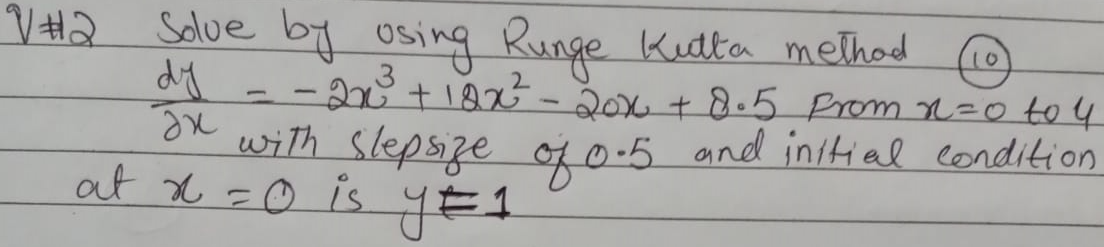 Q#2 Solve by using Runge Kutta method (10)
dy/dx = -2x³ + 12x² - 20x + 8.5 From x=0 to 4
with stepsize of 0.5 and initial condition
at x = 0 is y = 1